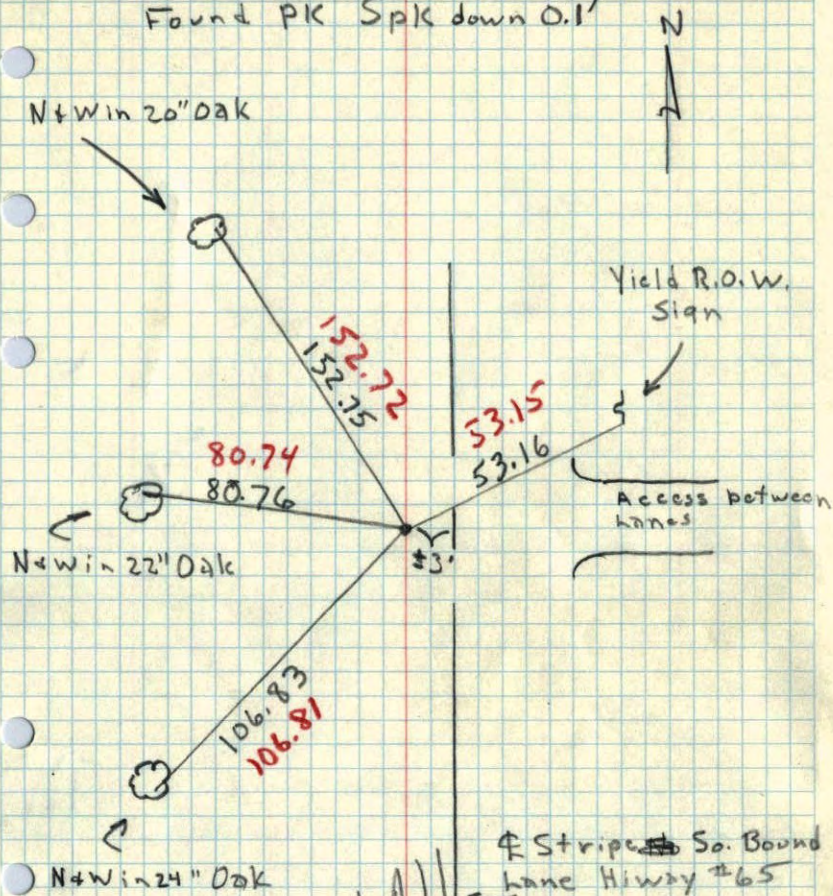 Found PK Spk down 0.1'
N
N & W in 20" Oak
Yield R.O.W.
Sign
152.72
152.75
53.15
53.16
80.74
80.76
Access between
Lanes
N & W in 22" Oak
±3'
106.83
106.81
℄ Stripe So. Bound
Lane Hiway #65
N & W in 24" Oak